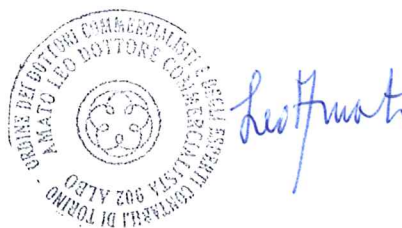 ORDINE DEI DOTTORI COMMERCIALISTI E DEGLI ESPERTI CONTABILI DI TORINO -
AMATO LEO DOTTORE COMMERCIALISTA 902 ALBO
Leo Amato